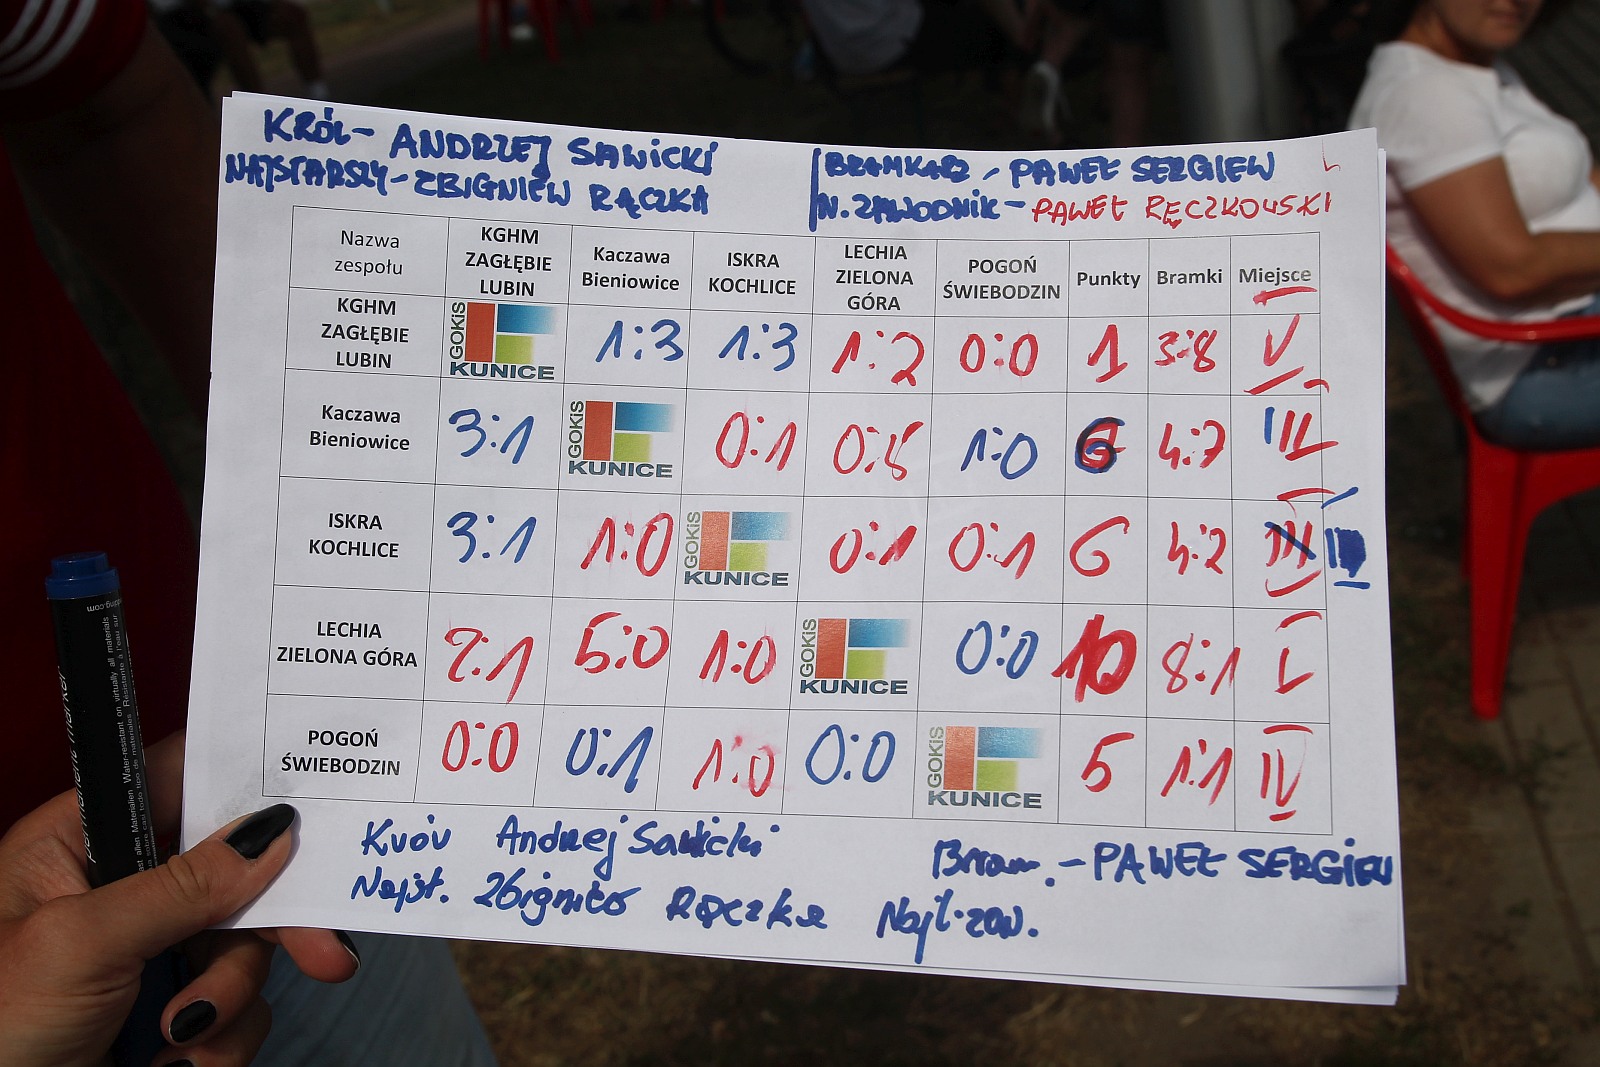 KRÓL- ANDRZEJ SAWICKI
NAJSTARSZY-ZBIGNIEW RĄCZKA
BRAMKARZ - PAWEŁ SERGIEW
N. ZAWODNIK- PAWEŁ RĘCZKOWSKI
Nazwa zespołu KGHM ZAGŁĘBIE LUBIN Kaczawa Bieniowice ISKRA KOCHLICE LECHIA ZIELONA GÓRA POGOŃ ŚWIEBODZIN Punkty Bramki Miejsce
KGHM ZAGŁĘBIE LUBIN GOKiS KUNICE 1:3 1:3 1:2 0:0 1 3:8 V
Kaczawa Bieniowice 3:1 GOKiS KUNICE 0:1 0:5 1:0 6 4:7 III
ISKRA KOCHLICE 3:1 1:0 GOKiS KUNICE 0:1 0:1 6 4:2
LECHIA ZIELONA GÓRA 2:1 5:0 1:0 GOKiS KUNICE 0:0 10 8:1 I
POGOŃ ŚWIEBODZIN 0:0 0:1 1:0 0:0 GOKiS KUNICE 5 1:1 IV
Król Andrzej Sawicki
Najst. Zbigniew Rączka
Bram. - PAWEŁ SERGIEW
Najl. zaw.
permanent marker